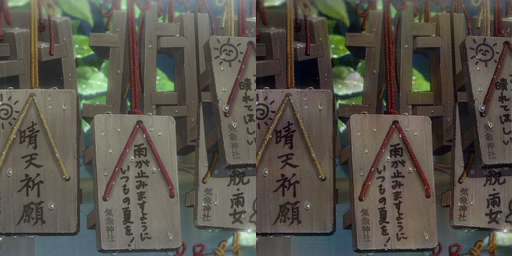 晴天祈願
雨が止みますように
いつもの夏を!
気象神社
晴れてほしい
気象神社
脱・雨女
気象神社
晴天祈願
雨が止みますように
いつもの夏を!
気象神社
晴れてほしい
気象神社
脱・雨女
気象神社